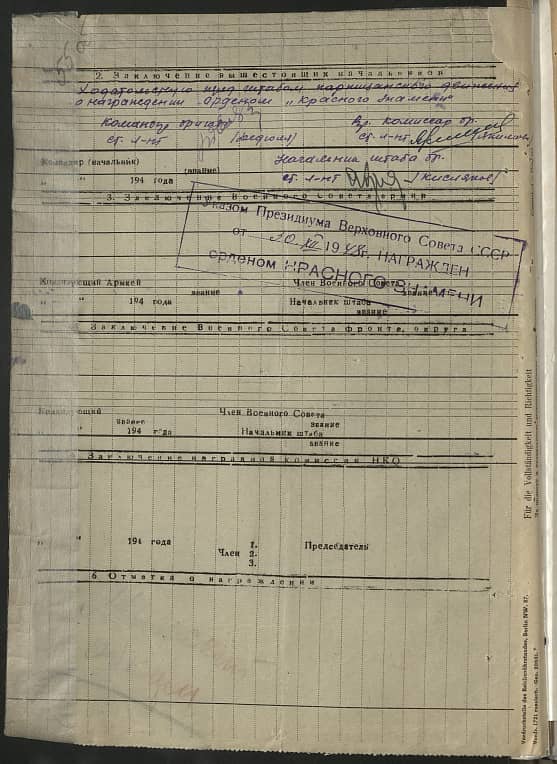 2. Заключение вышестоящих начальников
Ходатайствую пред штабом партизанского движения
о награждении Орденом „Красного Знамени"
Командир бригады
Вр. комиссар бр.
ст. л-нт
ст. л-нт
Командир (начальник)
(звание)
Начальник штаба бр.
" " 194 года
ст. л-нт (Кисляков)
3. Заключение Военного Совета армии
Указом Президиума Верховного Совета СССР
от 30 XII 1948г. НАГРАЖДЕН
орденом КРАСНОГО ЗНАМЕНИ
Командующий Армией
Член Военного Совета
звание
звание
" " 194 года
Начальник штаба
звание
Заключение Военного Совета фронта, округа
Командующий
Член Военного Совета
звание
звание
" " 194 года
Начальник штаба
звание
Заключение наградной комиссии НКО
" " 194 года
1.
Член 2.
3.
Председатель
6. Отметка о награждении
Für die Vollständigkeit und Richtigkeit
Vordruckstelle des Reichsverbandes, Berlin NW. 87.